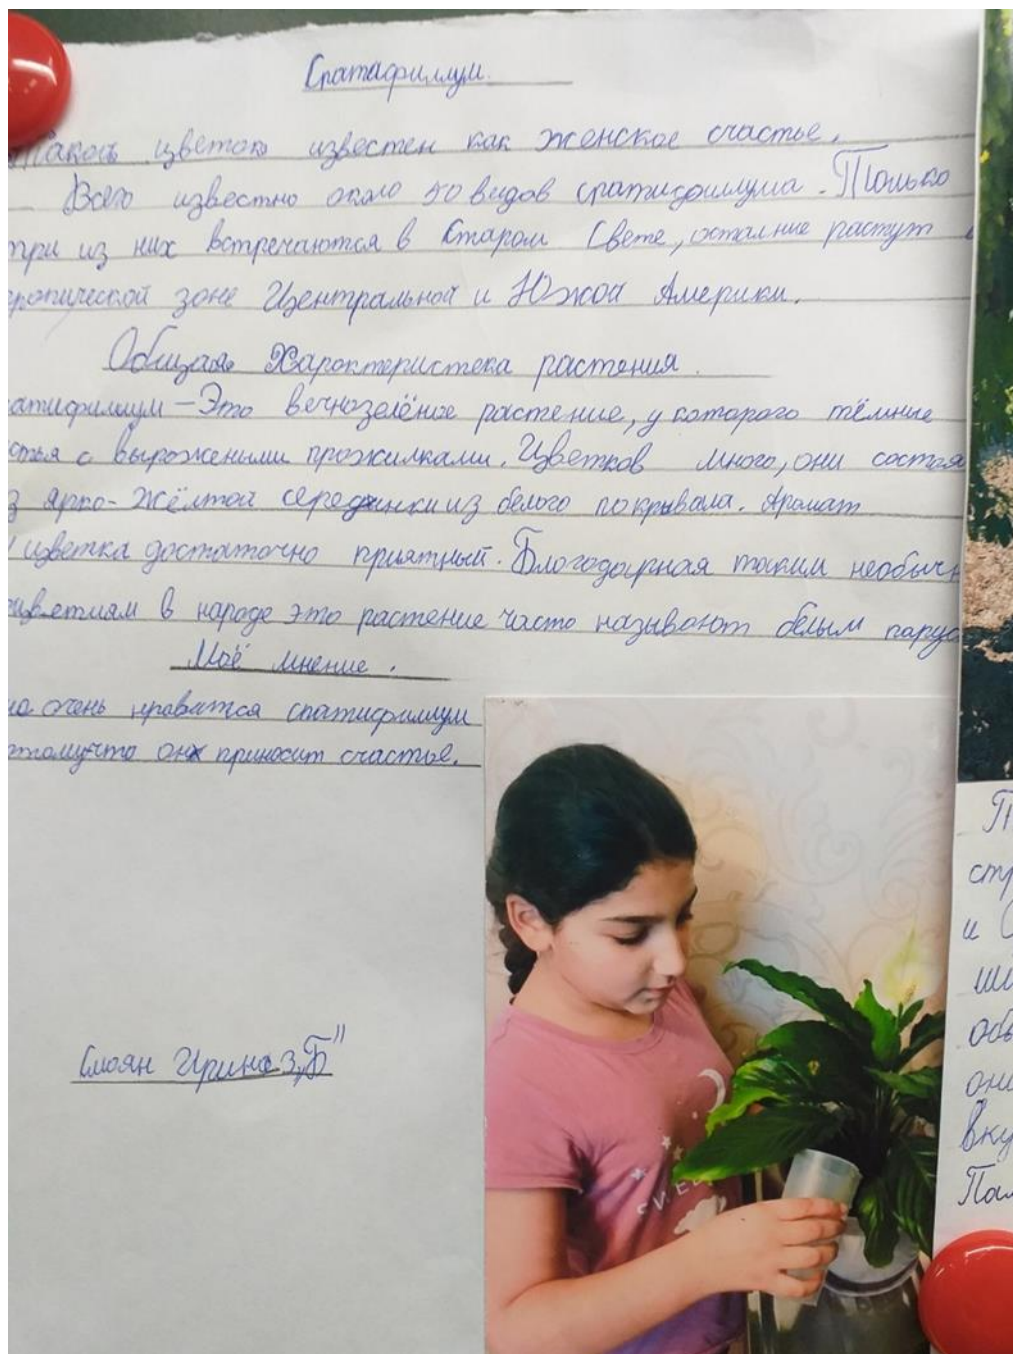 Спатафиллум.
Такой цветок известен как женское счастье.
Всего известно около 50 видов спатифиллума. Только
три из них встречаются в Старом Свете, осталние растут в
тропической зоне Центральной и Южой Америки.
Общая Характеристека растения.
атифиллум — Это вечнозелёное растение, у которого тёмные
стья с вырожеными прожилками. Цветков много, они состоя
з ярко-жёлтой серединки из белого покрывала. Аромат
цветка достаточно приятный. Благодарная таким необычн
цветиям в народе это растение часто называют белым парус
Моё мнение.
очень нравится спатифиллум
отому-что он приносит счастье.
Смоян Ирина 3„Б"
SWEE
П
стр
и С
ши
обв
они
вку
Пал